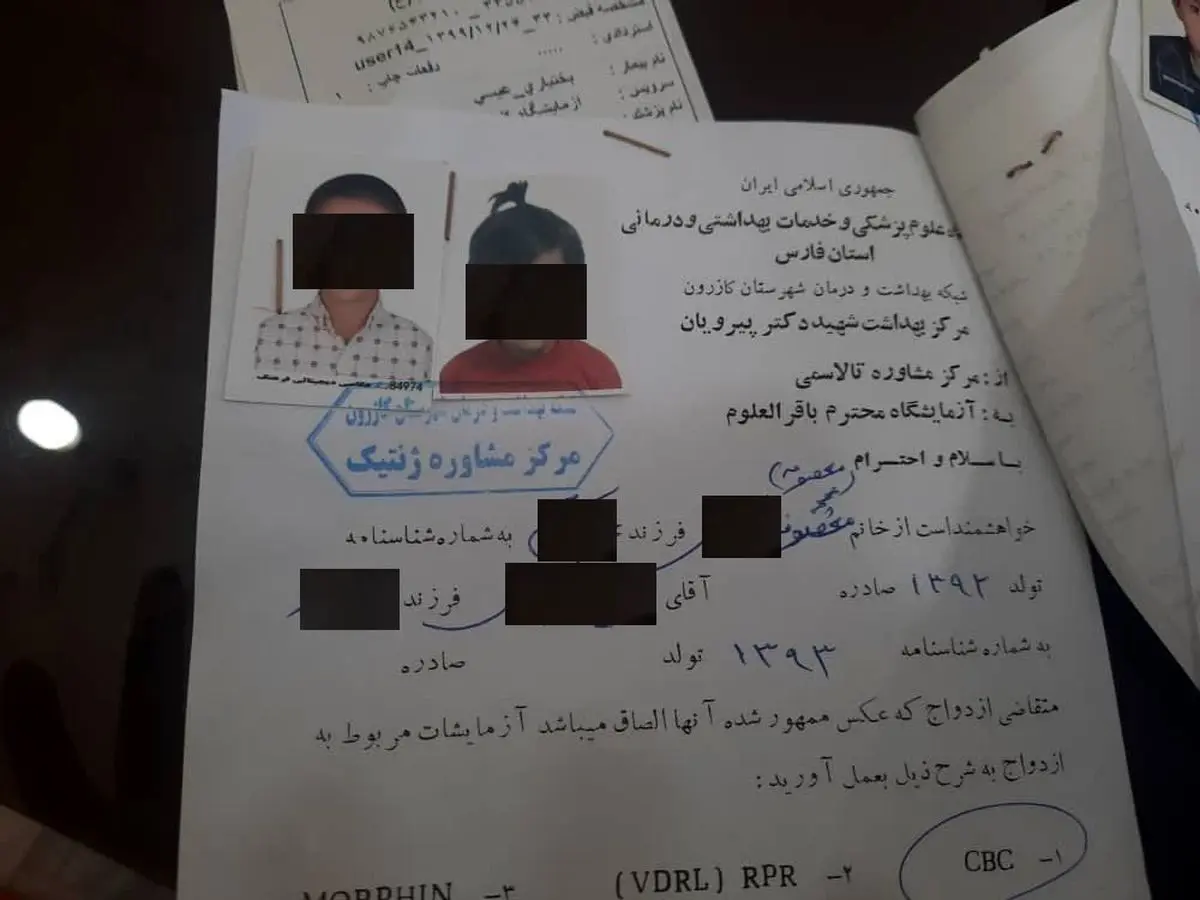 مشخصه قبض : ۳۳_۱۳۹۹/۱۲/۲۴_user14
۹۸۷۶۵۴۳۲۱۰
استردادی : .....
نام بیمار : بختیاري_عیسي
دفعات چاپ : ۱
سرویس : آزمایشگاه
نام پزشک :
جمهوری اسلامی ایران
علوم پزشکی و خدمات بهداشتی و درمانی
استان فارس
شبکه بهداشت و درمان شهرستان کازرون
مرکز بهداشت شهید دکتر پیرویان
84974
از: مرکز مشاوره تالاسمی
به: آزمایشگاه محترم باقرالعلوم
مرکز مشاوره ژنتیک
با سلام و احترام
خواهشمنداست از خانم فرزند به شماره شناسنامه
تولد ۱۳۹۲ صادره آقای فرزند
به شماره شناسنامه ۱۳۹۳ تولد صادره
متقاضی ازدواج که عکس ممهور شده آنها الصاق میباشد آزمایشات مربوط به
ازدواج به شرح ذیل بعمل آورید:
۱- CBC ۲- RPR (VDRL) ۳- MORPHIN